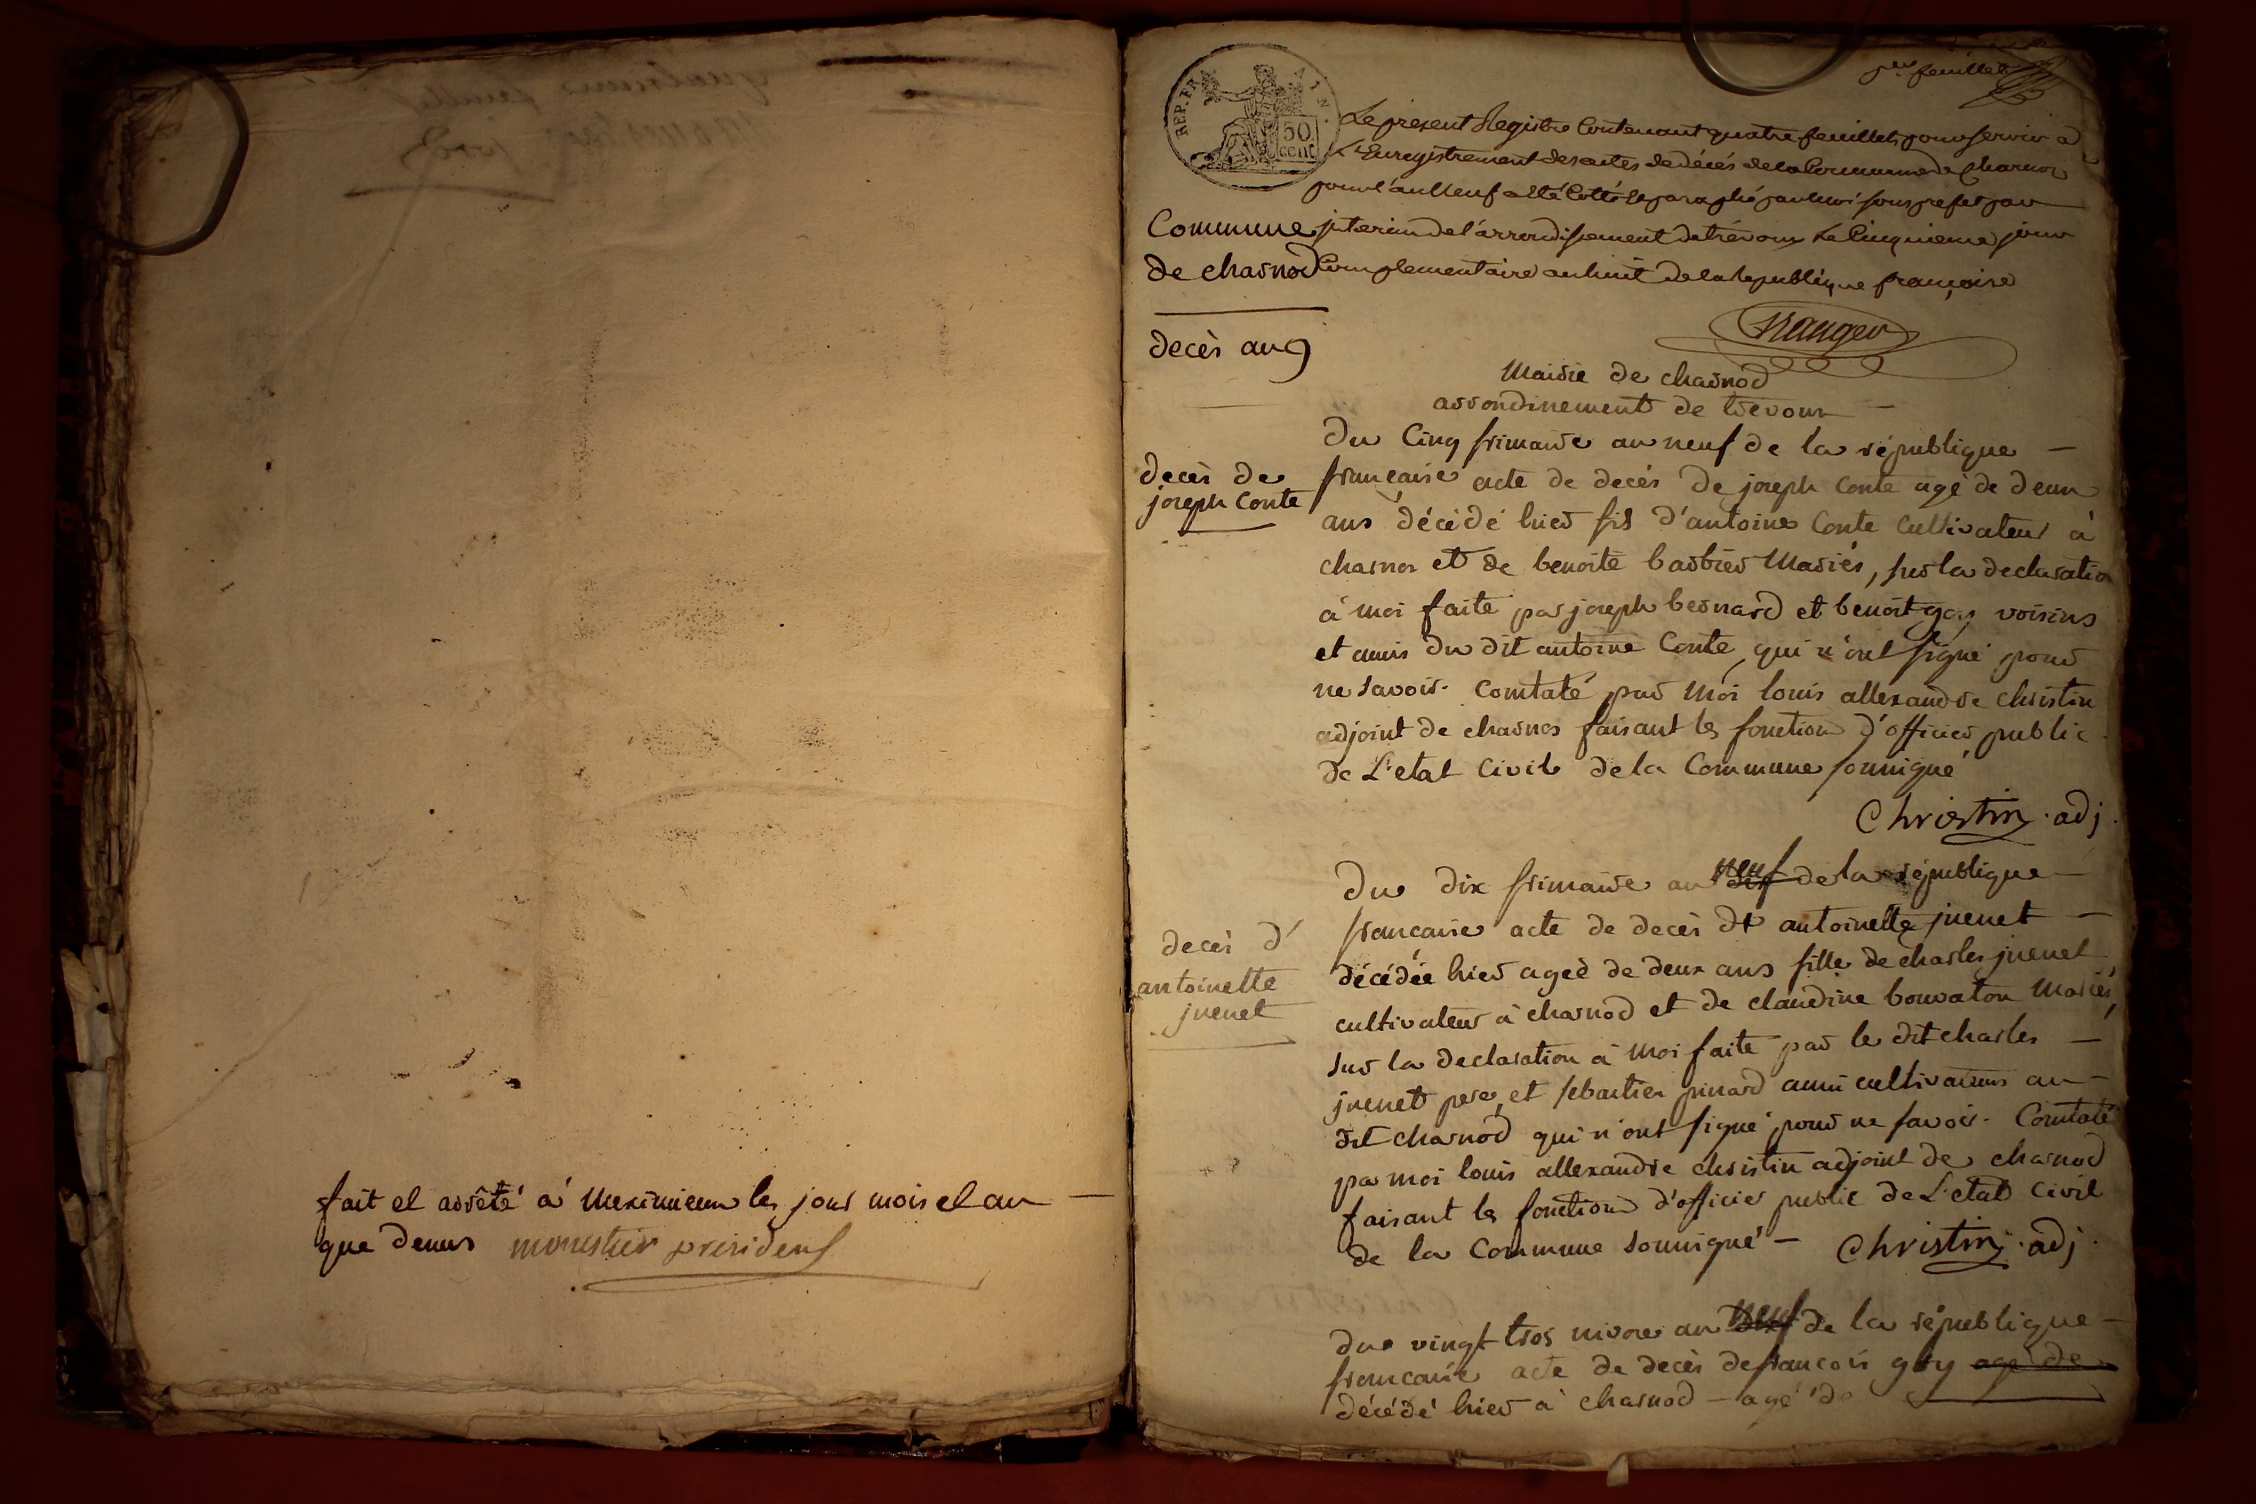 fait et arrêté a Meximieux les jour mois et an
que dessus monestier président
1er feuillet
REP. FRA
50
cent
Le présent Registre Contenant quatre feuillets pour servir a
L'Enregistrement des actes de décés de la Commune de Charnoz
pour l'an Neuf a été Cotté et paraphé par moi sous prefet par
interim de l'arrondissement de trévoux Le Cinquieme jour
Complementaire an huit de la Republique françoise
Commune
de charnod
decès an 9
Mairie de charnod
arrondissement de trevoux
du Cinq frimaire an neuf de la république
decès de
joseph Conte
francaise acte de decés de joseph Conte agé de deux
ans décédé hier fils d'antoine Conte Cultivateur à
charnos et de benoite barbier Mariés, sur la declaration
à moi faite par joseph bernard et benoit voisins
et amis du dit antoine Conte, qui n'ont signé pour
ne savoir. Constaté par Moi louis allexandre christin
adjoint de charnos faisant les fonction d'officier public
de L'etat Civil de la Commune soussigné
Christin adj.
du dix frimaire an neuf de la république
decès d'
antoinette
juenet
francaise acte de decès de antoinette juenet
décédée hier ageè de deux ans fille de charles juenet
cultivateur à charnod et de claudine bouvaton Mariés,
sur la declaration à Moi faite par le dit charles
juenet pere, et sebastien pinard ami cultivateurs au
dit charnod qui n'ont signé pour ne savoir. Constaté
par moi louis allexandre christin adjoint de charnod
faisant les fonctions d'officier public de L'etat civil
de la Commune soussigné Christin adj.
du vingt trois nivose an neuf de la république
francaise acte de decès de francois guy age de
décédé hier à charnod agé de